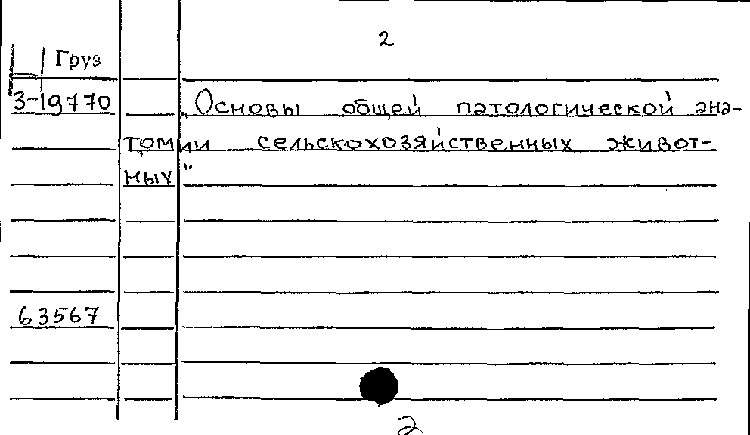 2
Груз
3-19770 „Основы общей патологической ана-
томии сельскохозяйственных живот-
ных"
63567
2